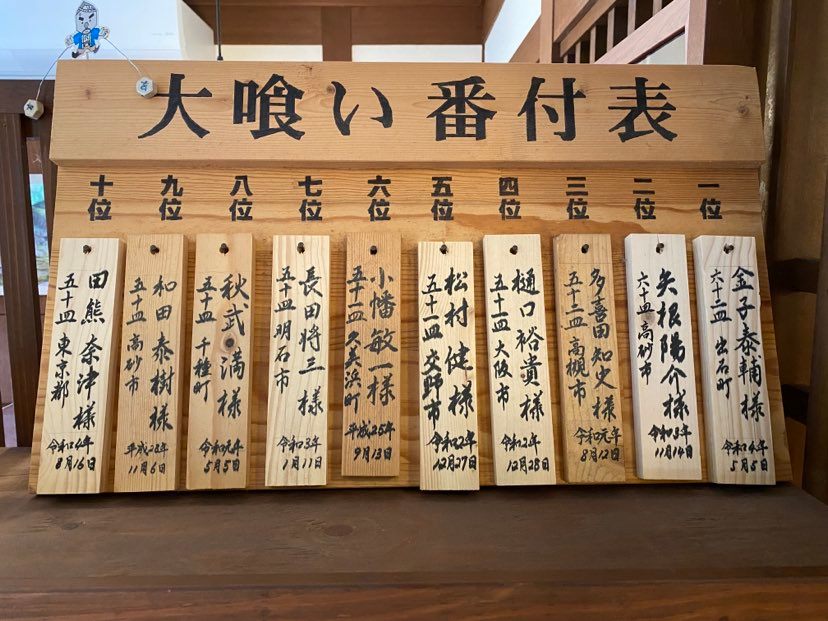 大喰い番付表
一位
金子泰輔様
六十二皿 出石町
令和4年
5月5日
二位
矢根陽介様
六十皿 高砂市
令和3年
11月14日
三位
多喜田知史様
五十二皿 高槻市
令和元年
8月12日
四位
樋口裕貴様
五十一皿 大阪市
令和2年
12月28日
五位
松村健様
五十一皿 交野市
令和2年
12月27日
六位
小幡敏一様
五十一皿 久美浜町
平成25年
9月13日
七位
長田将三様
五十皿 明石市
令和3年
1月11日
八位
秋武満様
五十皿 千種町
令和元年
5月5日
九位
和田泰樹様
五十皿 高砂市
平成28年
11月6日
十位
田熊奈津様
五十皿 東京都
令和4年
8月16日